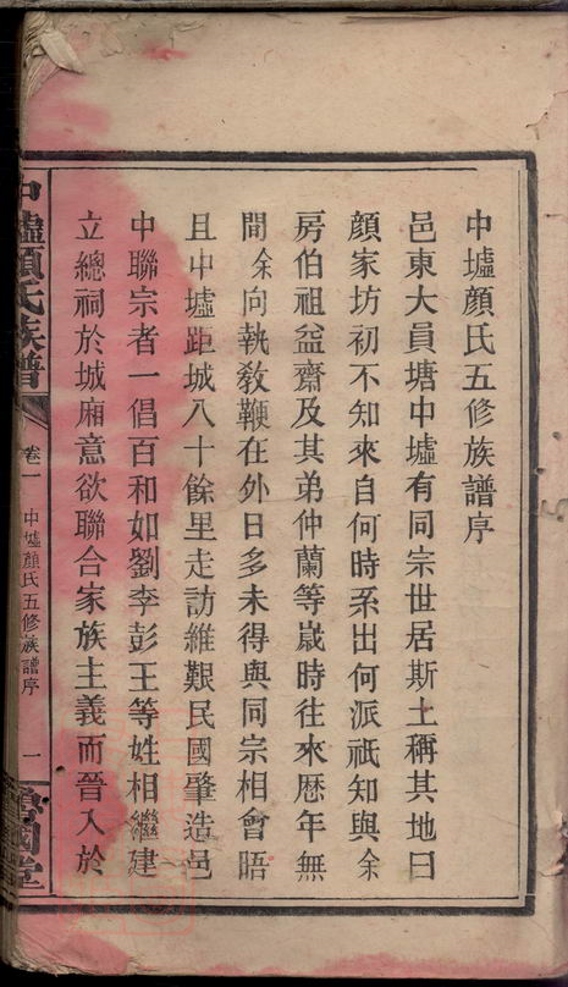 中墟顏氏五修族譜序
邑東大員塘中墟有同宗世居斯土稱其地曰
顏家坊初不知來自何時系出何派祇知與余
房伯祖益齋及其弟仲蘭等歲時往來歷年無
間余向執教鞭在外日多未得與同宗相會晤
且中墟距城八十餘里走訪維艱民國肇造邑
中聯宗者一倡百和如劉李彭王等姓相繼建
立總祠於城廂意欲聯合家族主義而晉入於
中墟顏氏族譜
卷一
中墟顏氏五修族譜序
一
魯國堂